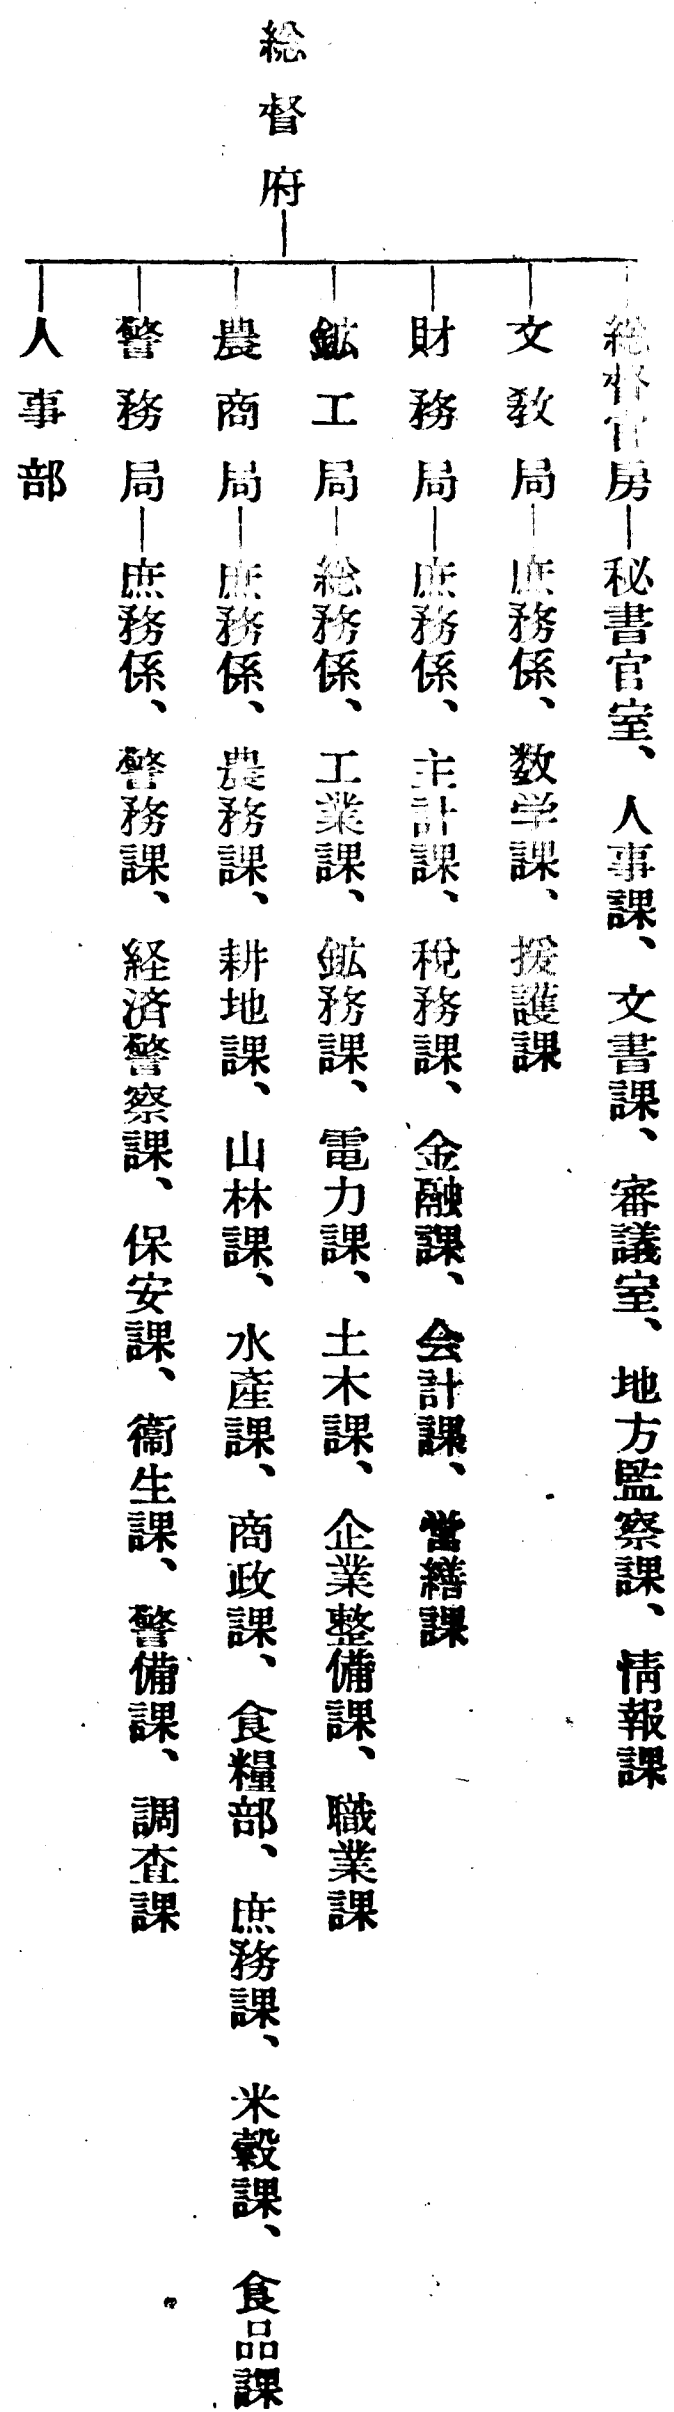 総督府
総督官房―秘書官室、人事課、文書課、審議室、地方監察課、情報課
文教局―庶務係、数学課、援護課
財務局―庶務係、主計課、税務課、金融課、会計課、営繕課
鉱工局―総務係、工業課、鉱務課、電力課、土木課、企業整備課、職業課
農商局―庶務係、農務課、耕地課、山林課、水産課、商政課、食糧部、庶務課、米穀課、食品課
警務局―庶務係、警務課、経済警察課、保安課、衛生課、警備課、調査課
人事部